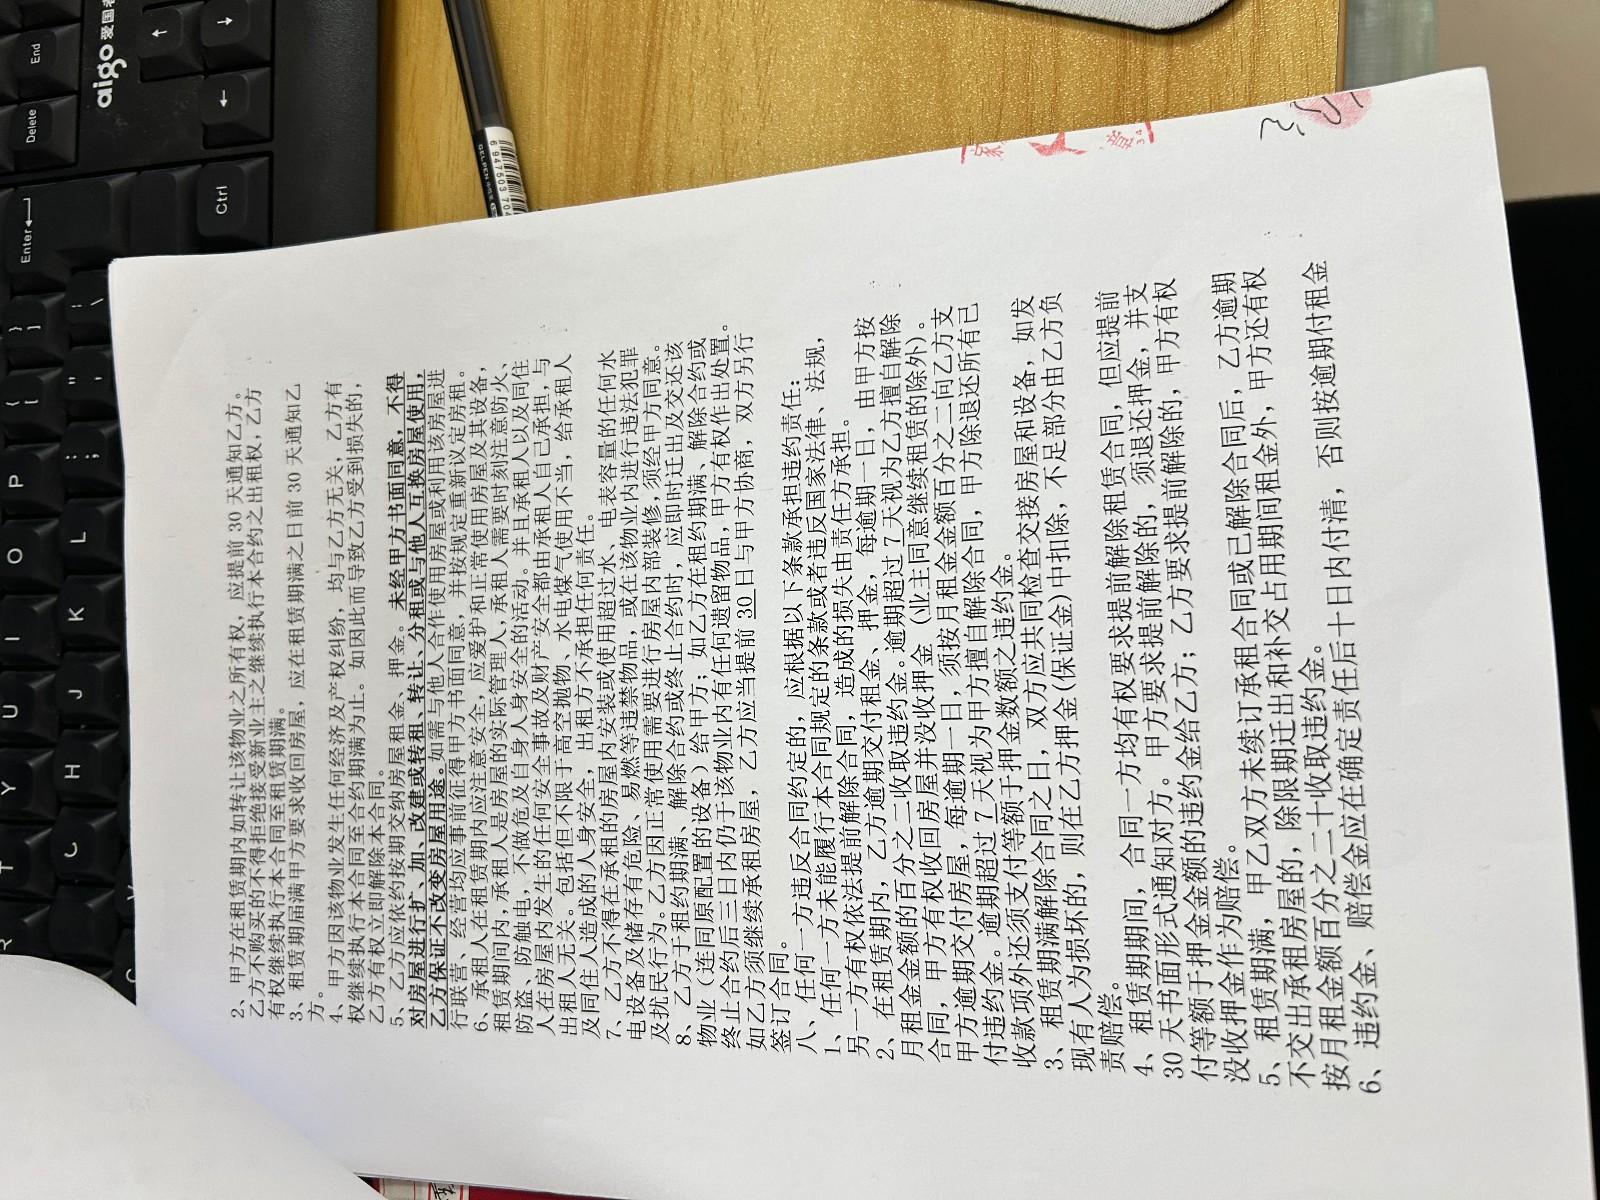 2、甲方在租赁期内如转让该物业之所有权，应提前 30 天通知乙方。
乙方不购买的不得拒绝接受新业主之继续执行本合约之出租权，乙方
有权继续执行本合同至租赁期满。
3、租赁期届满甲方要求收回房屋，应在租赁期满之日前 30 天通知乙
方。
4、甲方因该物业发生任何经济及产权纠纷，均与乙方无关，乙方有
权继续执行本合同至合约期满为止。如因此而导致乙方受到损失的，
乙方有权立即解除本合同。
5、乙方应依约按期交纳房屋租金、押金。未经甲方书面同意，不得
对房屋进行扩、加、改建或转租、转让、分租或与他人互换房屋使用，
乙方保证不改变房屋用途。如需与他人合作使用房屋或利用该房屋进
行联营、经营均应事前征得甲方书面同意，并按规定重新议定房租。
6、承租人在租赁期内应注意安全，应爱护和正常使用房屋及其设备，
租赁期间内，承租人是房屋的实际管理人，承租人需要时刻注意防火、
防盗、防触电，不做危及自身人身安全的活动。并且承租人以及同住
人在房屋内发生的任何安全事故及财产安全都由承租人自己承担，与
出租人无关。包括但不限于高空抛物、水电煤气使用不当，给承租人
及同住人造成的人身安全，出租方不承担任何责任。
7、乙方不得在承租的房屋内安装或使用超过水、电表容量的任何水
电设备及储存有危险、易燃等违禁物品，或在该物业内进行违法犯罪
及扰民行为。乙方因正常使用需要进行房屋内部装修，须经甲方同意。
8、乙方于租约期满、解除合约或终止合约时，应即时迁出及交还该
物业（连同原配置的设备）给甲方；如乙方在租约期满、解除合约或
终止合约后三日内仍于该物业内有任何遗留物品，甲方有权作出处置。
如乙方须继续承租房屋，乙方应当提前 30 日与甲方协商，双方另行
签订合同。
八、任何一方违反合同约定的，应根据以下条款承担违约责任：
1、任何一方未能履行本合同规定的条款或者违反国家法律、法规，
另一方有权依法提前解除合同，造成的损失由责任方承担。
2、在租赁期内，乙方逾期交付租金、押金，每逾期一日，由甲方按
月租金金额的百分之二收取违约金。逾期超过 7 天视为乙方擅自解除
合同，甲方有权收回房屋并没收押金（业主同意继续租赁的除外）。
甲方逾期交付房屋，每逾期一日，须按月租金金额百分之二向乙方支
付违约金。逾期超过 7 天视为甲方擅自解除合同，甲方除退还所有已
收款项外还须支付等额于押金数额之违约金。
3、租赁期满解除合同之日，双方应共同检查交接房屋和设备，如发
现有人为损坏的，则在乙方押金(保证金)中扣除，不足部分由乙方负
责赔偿。
4、租赁期期间，合同一方均有权要求提前解除租赁合同，但应提前
30 天书面形式通知对方。甲方要求提前解除的，须退还押金，并支
付等额于押金金额的违约金给乙方；乙方要求提前解除的，甲方有权
没收押金作为赔偿。
5、租赁期满，甲乙双方未续订承租合同或已解除合同后，乙方逾期
不交出承租房屋的，除限期迁出和补交占用期间租金外，甲方还有权
按月租金额百分之二十收取违约金。
6、违约金、赔偿金应在确定责任后十日内付清，否则按逾期付租金
aigo 爱国者
End
Delete
Enter
Ctrl
P
O
I
U
Y
T
R
L
K
J
H
C